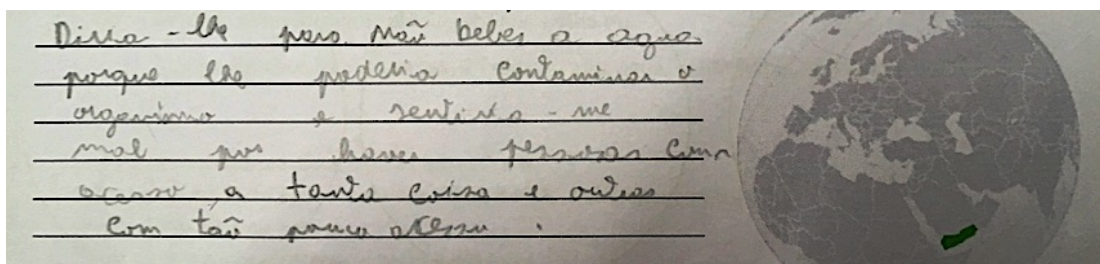 Dizia-lhe para não beber a agua
porque lhe poderia contaminar o
organismo e sentiria-me
mal por haver pessoas com
acesso a tanta coisa e outras
com tão pouco acesso.